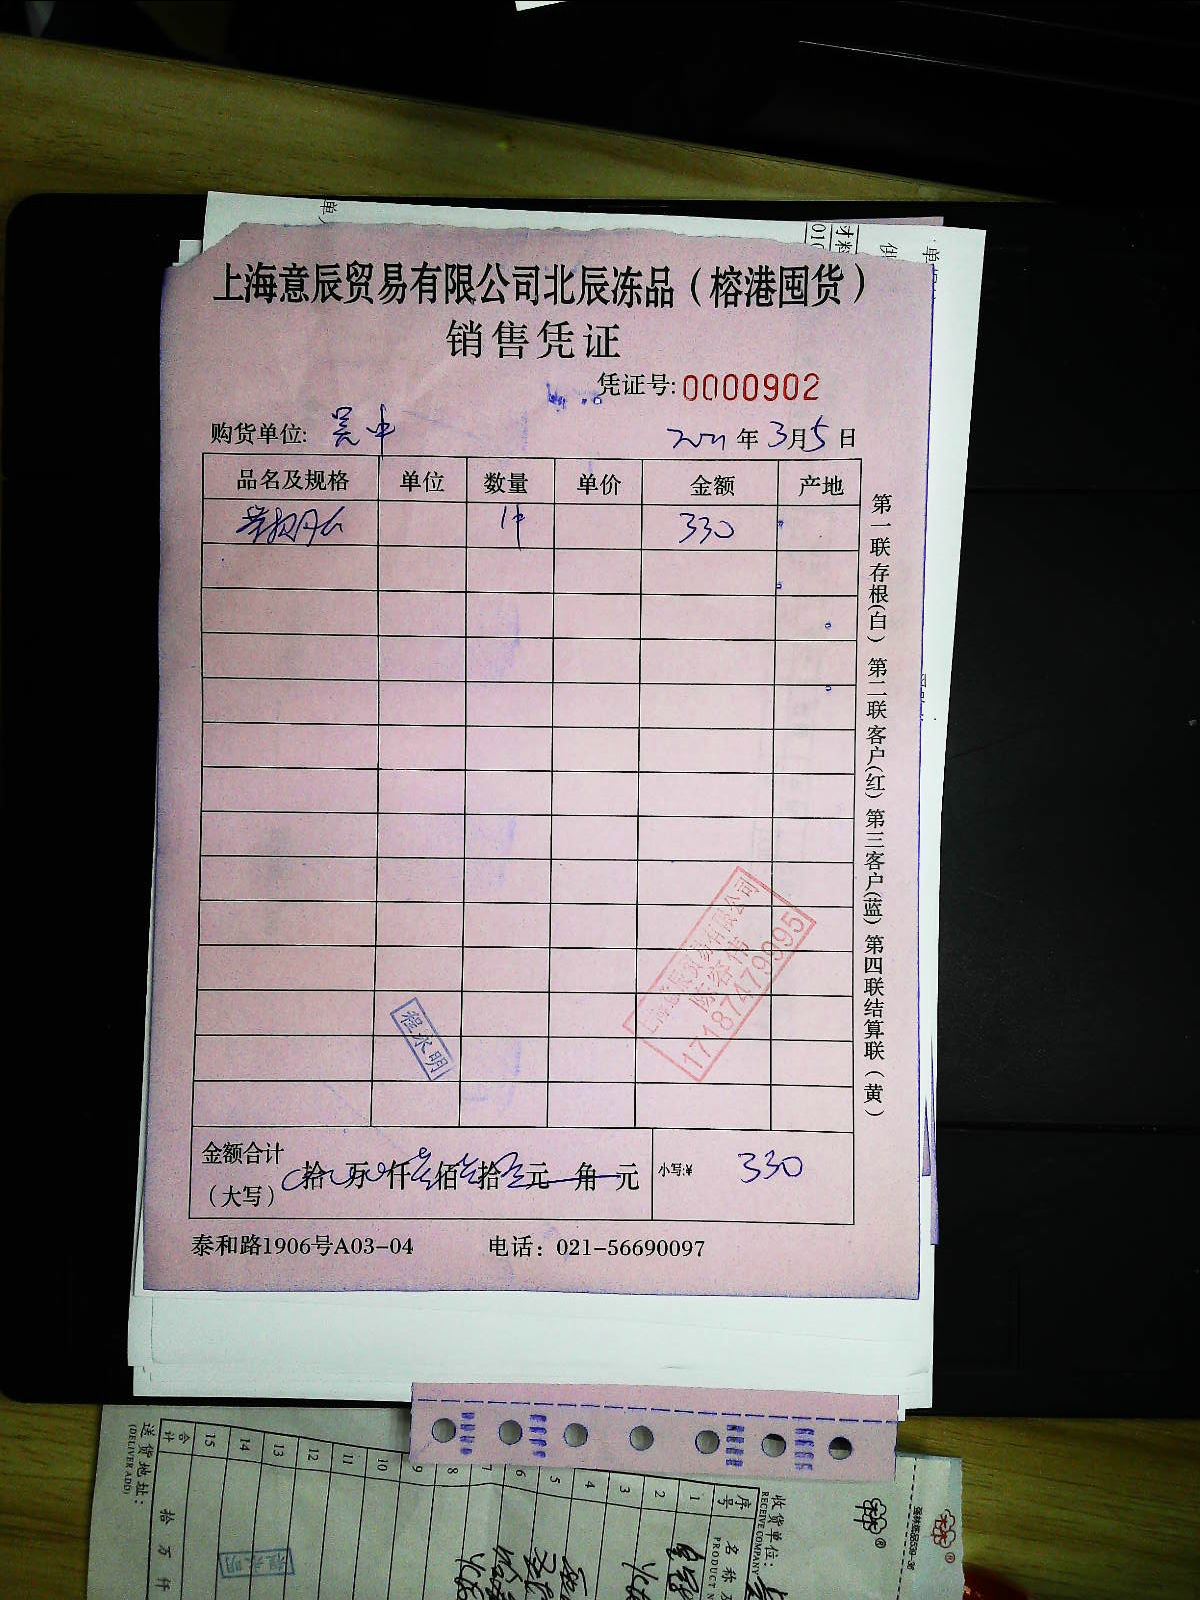 上海意辰贸易有限公司北辰冻品（榕港囤货）
销售凭证
凭证号:0000902
购货单位: 吴中
2021年3月5日
品名及规格 单位 数量 单价 金额 产地
1件 330
金额合计
（大写） 拾 万 仟叁佰叁拾 元 角 元 小写:¥ 330
泰和路1906号A03-04 电话：021-56690097
第一联存根(白) 第二联客户(红) 第三客户(蓝) 第四联结算联（黄）
上海意辰贸易有限公司
陈容伟
17187479995
程永明
收货单位:
RECEIVE COMPANY
序号
1
2
3
4
5
6
7
8
9
10
11
12
13
14
15
合计
拾 万 仟
送货地址:
(DELIVER ADD)
程永明